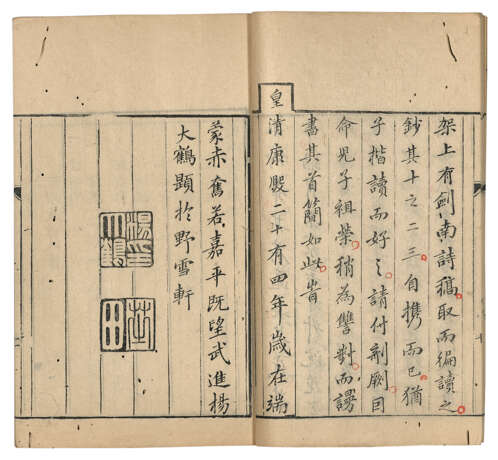 架上有劍南詩稿取而徧讀之
鈔其十之二三自携而已猶
子揩讀而好之請付剞劂因
命児子祖榮稍為讐對而謬
書其首簡如此峕
皇清康熙二十有四年歲在端
蒙赤奮若嘉平既望武進楊
大鶴題於野雪軒
楊印大鶴
芝田